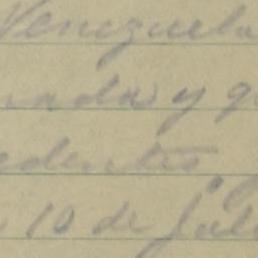 Venezuela
nada y q
edentes
10 de Jul